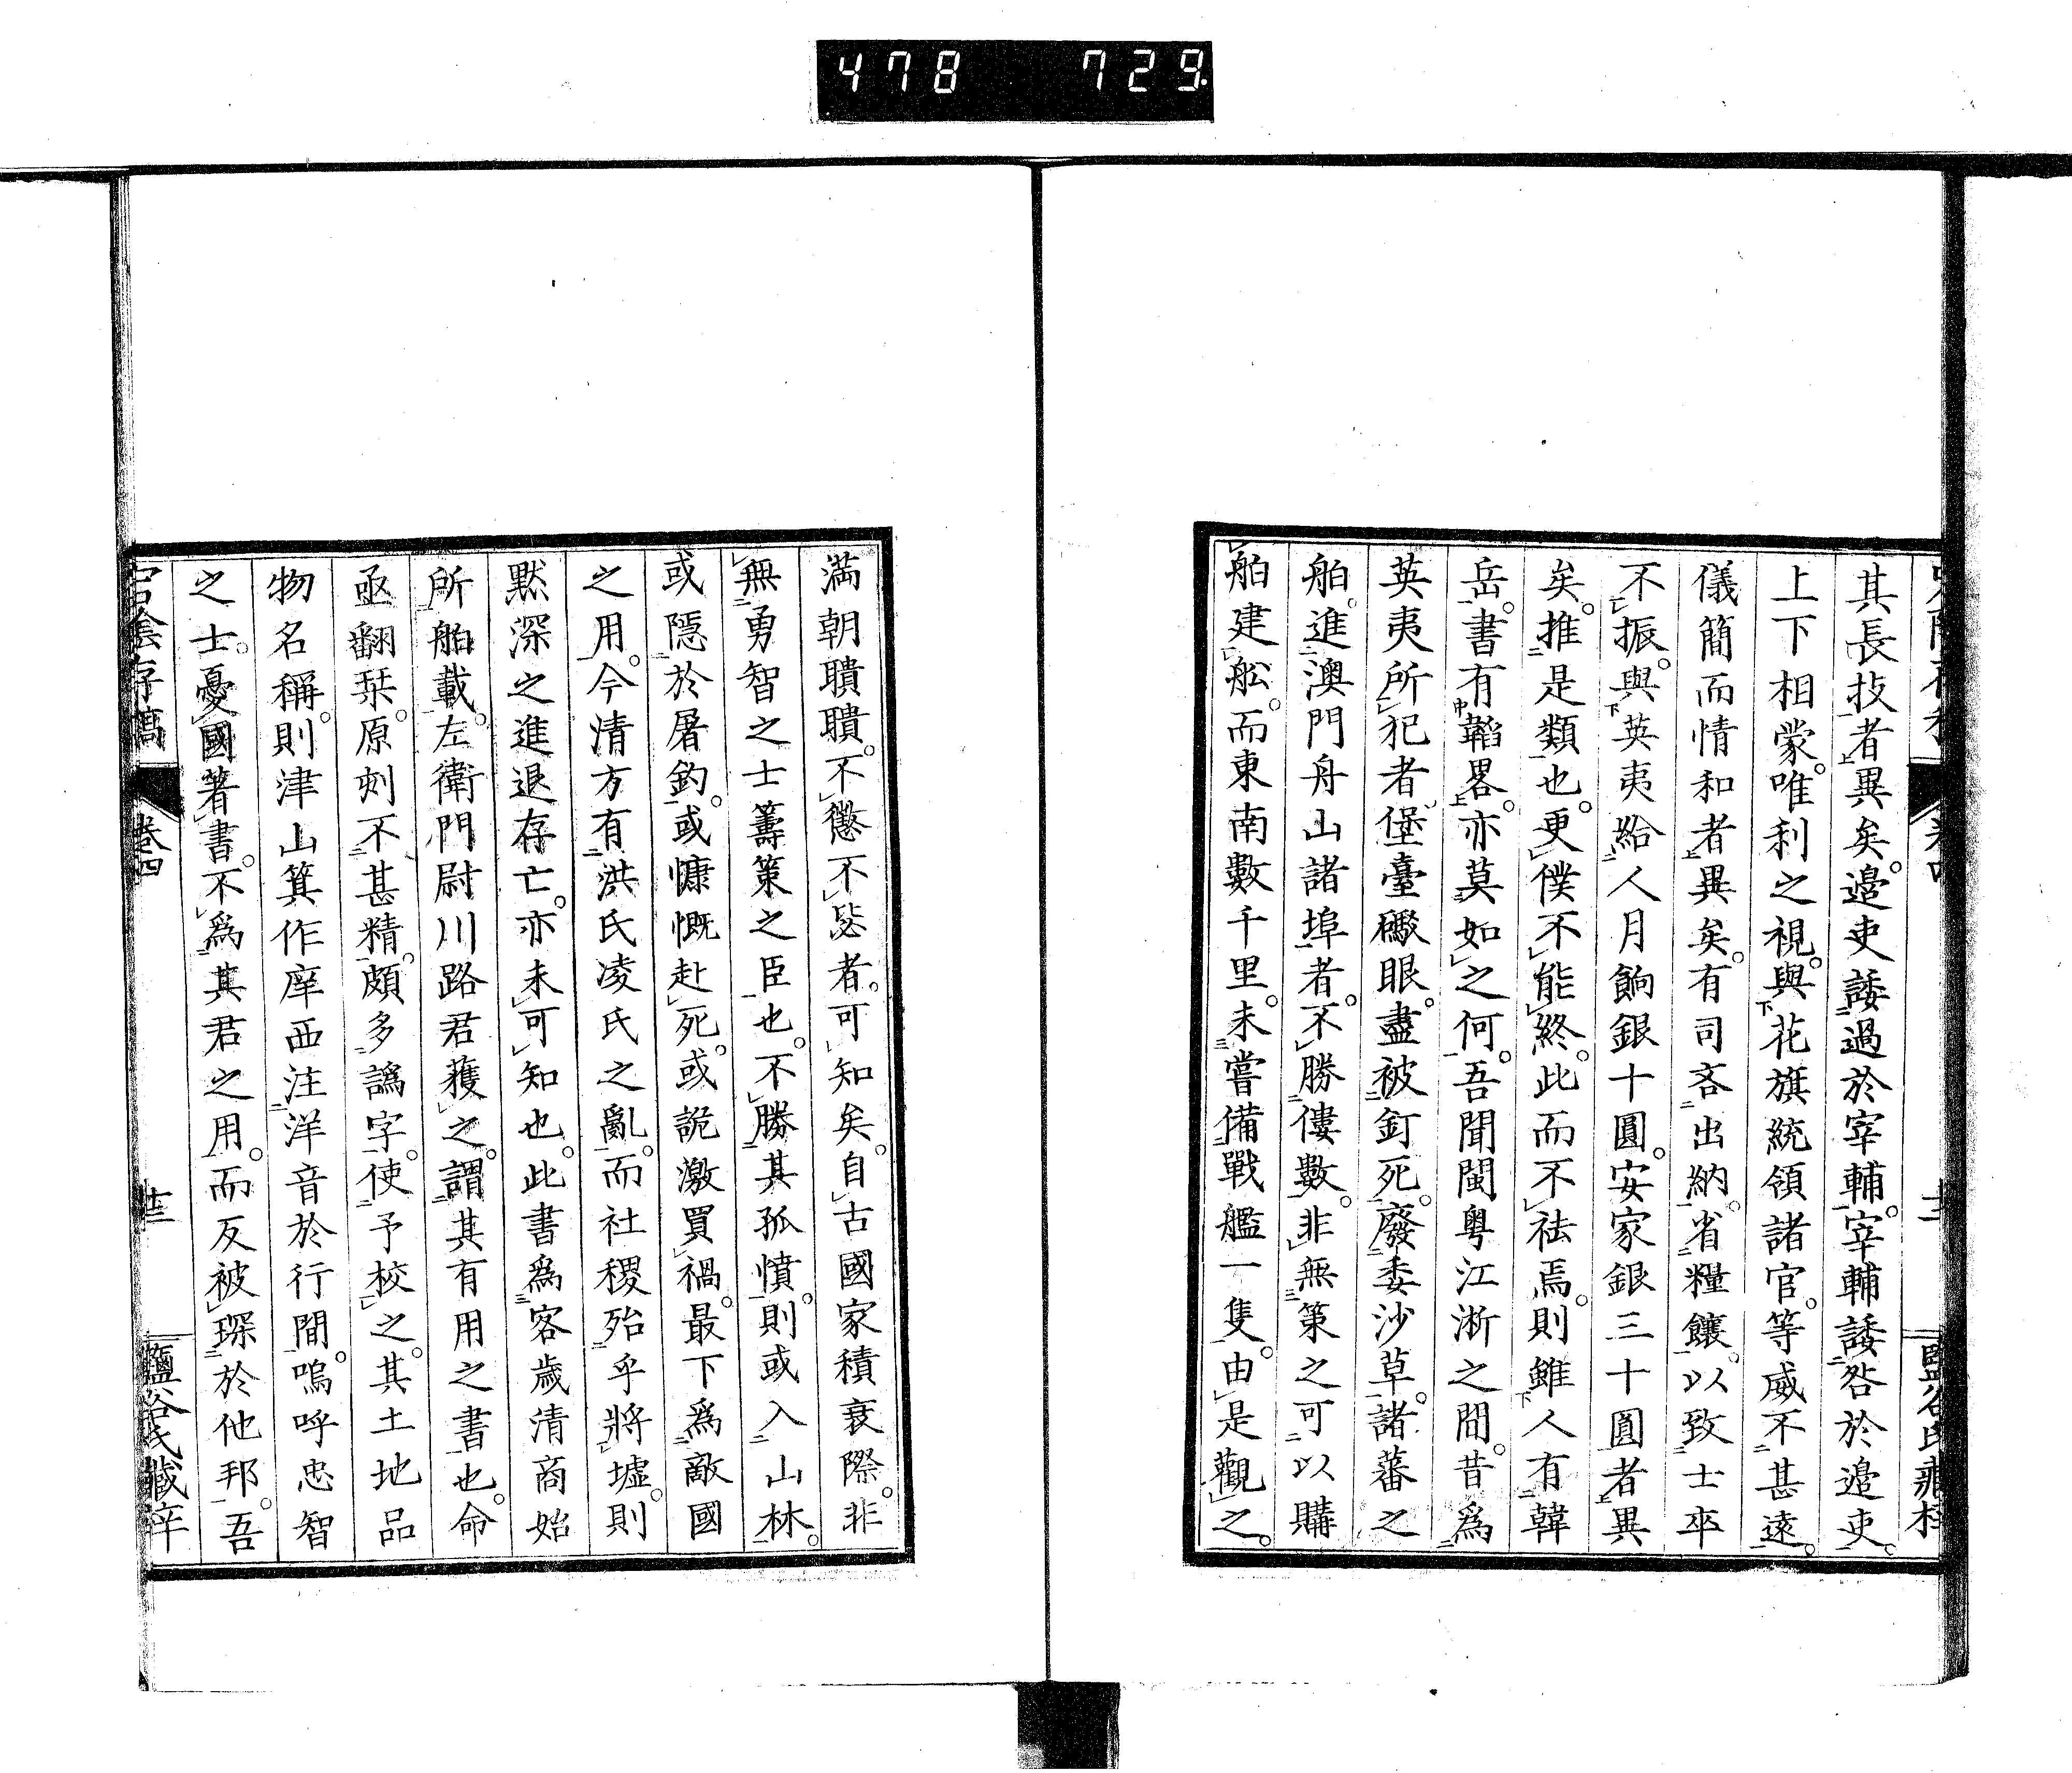 478 729
其長技者異矣。邉吏諉過於宰輔。宰輔諉咎於邉吏。
上下相蒙。唯利之視。與花旗統領諸官。等威不甚遠。
儀簡而情和者異矣。有司吝出納。省糧饟。以致士卒
不振。與英夷給人月餉銀十圓。安家銀三十圓者異
矣。推是類也。更僕不能終。此而不祛焉。則雖人有韓
岳。書有韜畧。亦莫如之何。吾聞閩粤江淅之間。昔為
英夷所犯者。堡臺礮眼。盡被釘死。廢委沙草。諸蕃之
舶。進澳門舟山諸埠者。不勝僂數。非無策之可以購
舶建舩。而東南數千里。未嘗備戰艦一隻。由是觀之。
滿朝聵聵。不懲不毖者。可知矣。自古國家積衰際。非
無勇智之士籌策之臣也。不勝其孤憤。則或入山林。
或隱於屠釣。或慷慨赴死。或詭激買禍。最下為敵國
之用。今清方有洪氏凌氏之亂。而社稷殆乎將墟。則
默深之進退存亡。亦未可知也。此書為客歲清商始
所舶載。左衛門尉川路君獲之。謂其有用之書也。命
亟翻栞。原刿不甚精。頗多譌字。使予校之。其土地品
物名稱。則津山箕作庠西注洋音於行間。嗚呼忠智
之士。憂國著書。不為其君之用。而反被琛於他邦。吾
宕陰存稿 卷四 十三 鹽谷氏藏梓